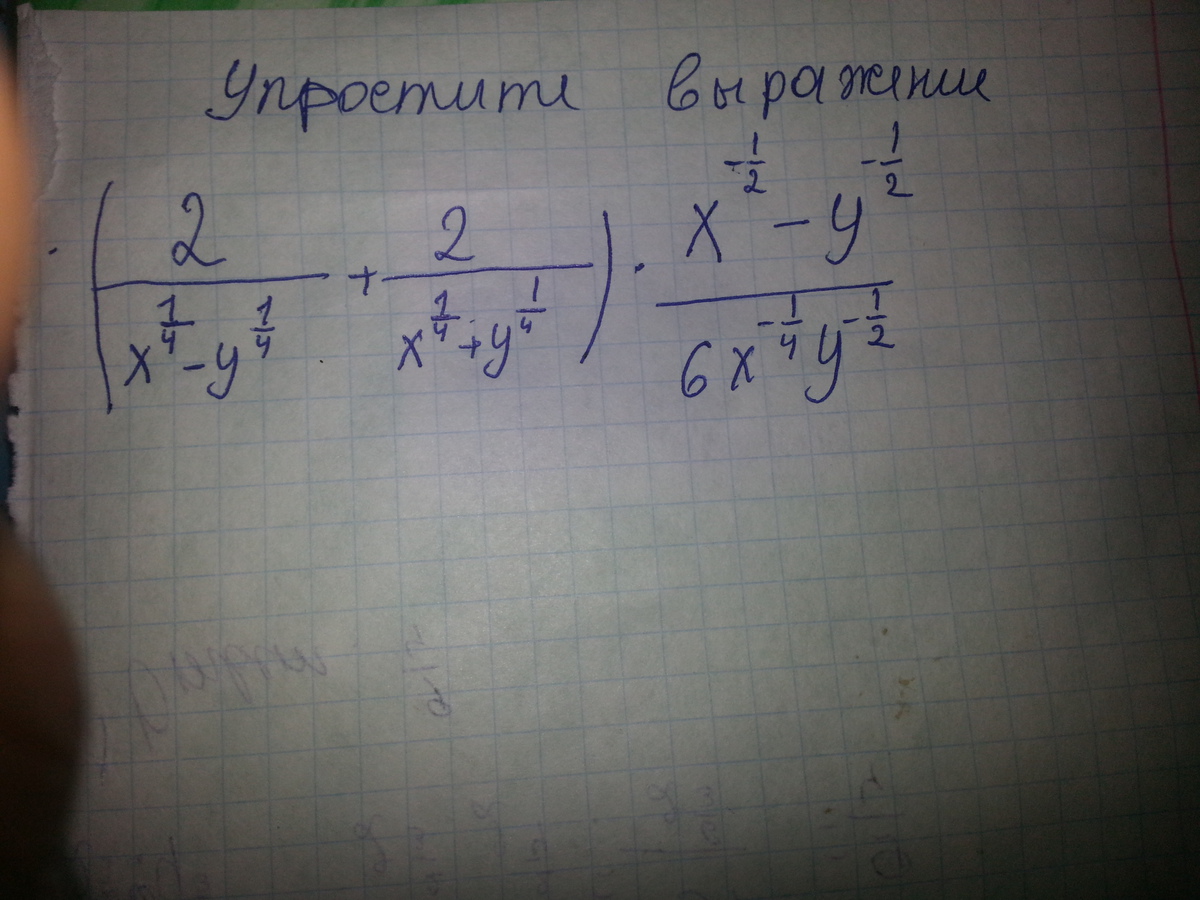 Упростите выражение
(2/(x^(1/4) - y^(1/4)) + 2/(x^(1/4) + y^(1/4))) · (x^(-1/2) - y^(-1/2))/(6x^(-1/4)y^(-1/2))